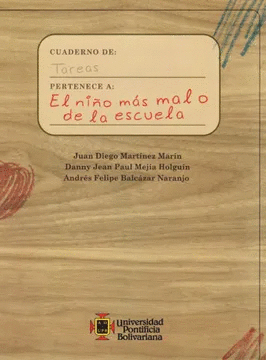 CUADERNO DE:
Tareas
PERTENECE A:
El niño más malo
de la escuela
Juan Diego Martínez Marín
Danny Jean Paul Mejía Holguín
Andrés Felipe Balcázar Naranjo
Universidad
Pontificia
Bolivariana